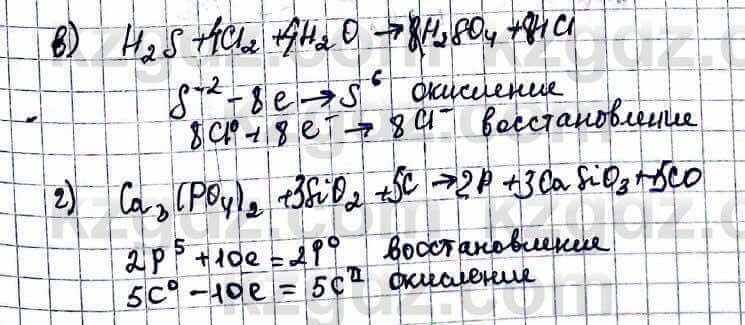 в) H₂S + 4Cl₂ + 4H₂O → H₂SO₄ + 8HCl
S⁻² - 8e → S⁶ окисление
8Cl⁰ + 8e⁻ → 8Cl⁻ восстановление
г) Ca₃(PO₄)₂ + 3SiO₂ + 5C → 2P + 3CaSiO₃ + 5CO
2P⁵ + 10e = 2P⁰ восстановление
5C⁰ - 10e = 5C^II окисление